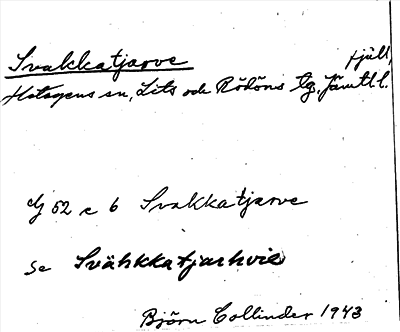 Svakkatjarve fjäll,
Hotagens sn, Lits och Rödöns tg. Jämtl. l.
62 c 6 Svakkatjarve
se Svähkkatjarhvie
Björn Collinder 1943